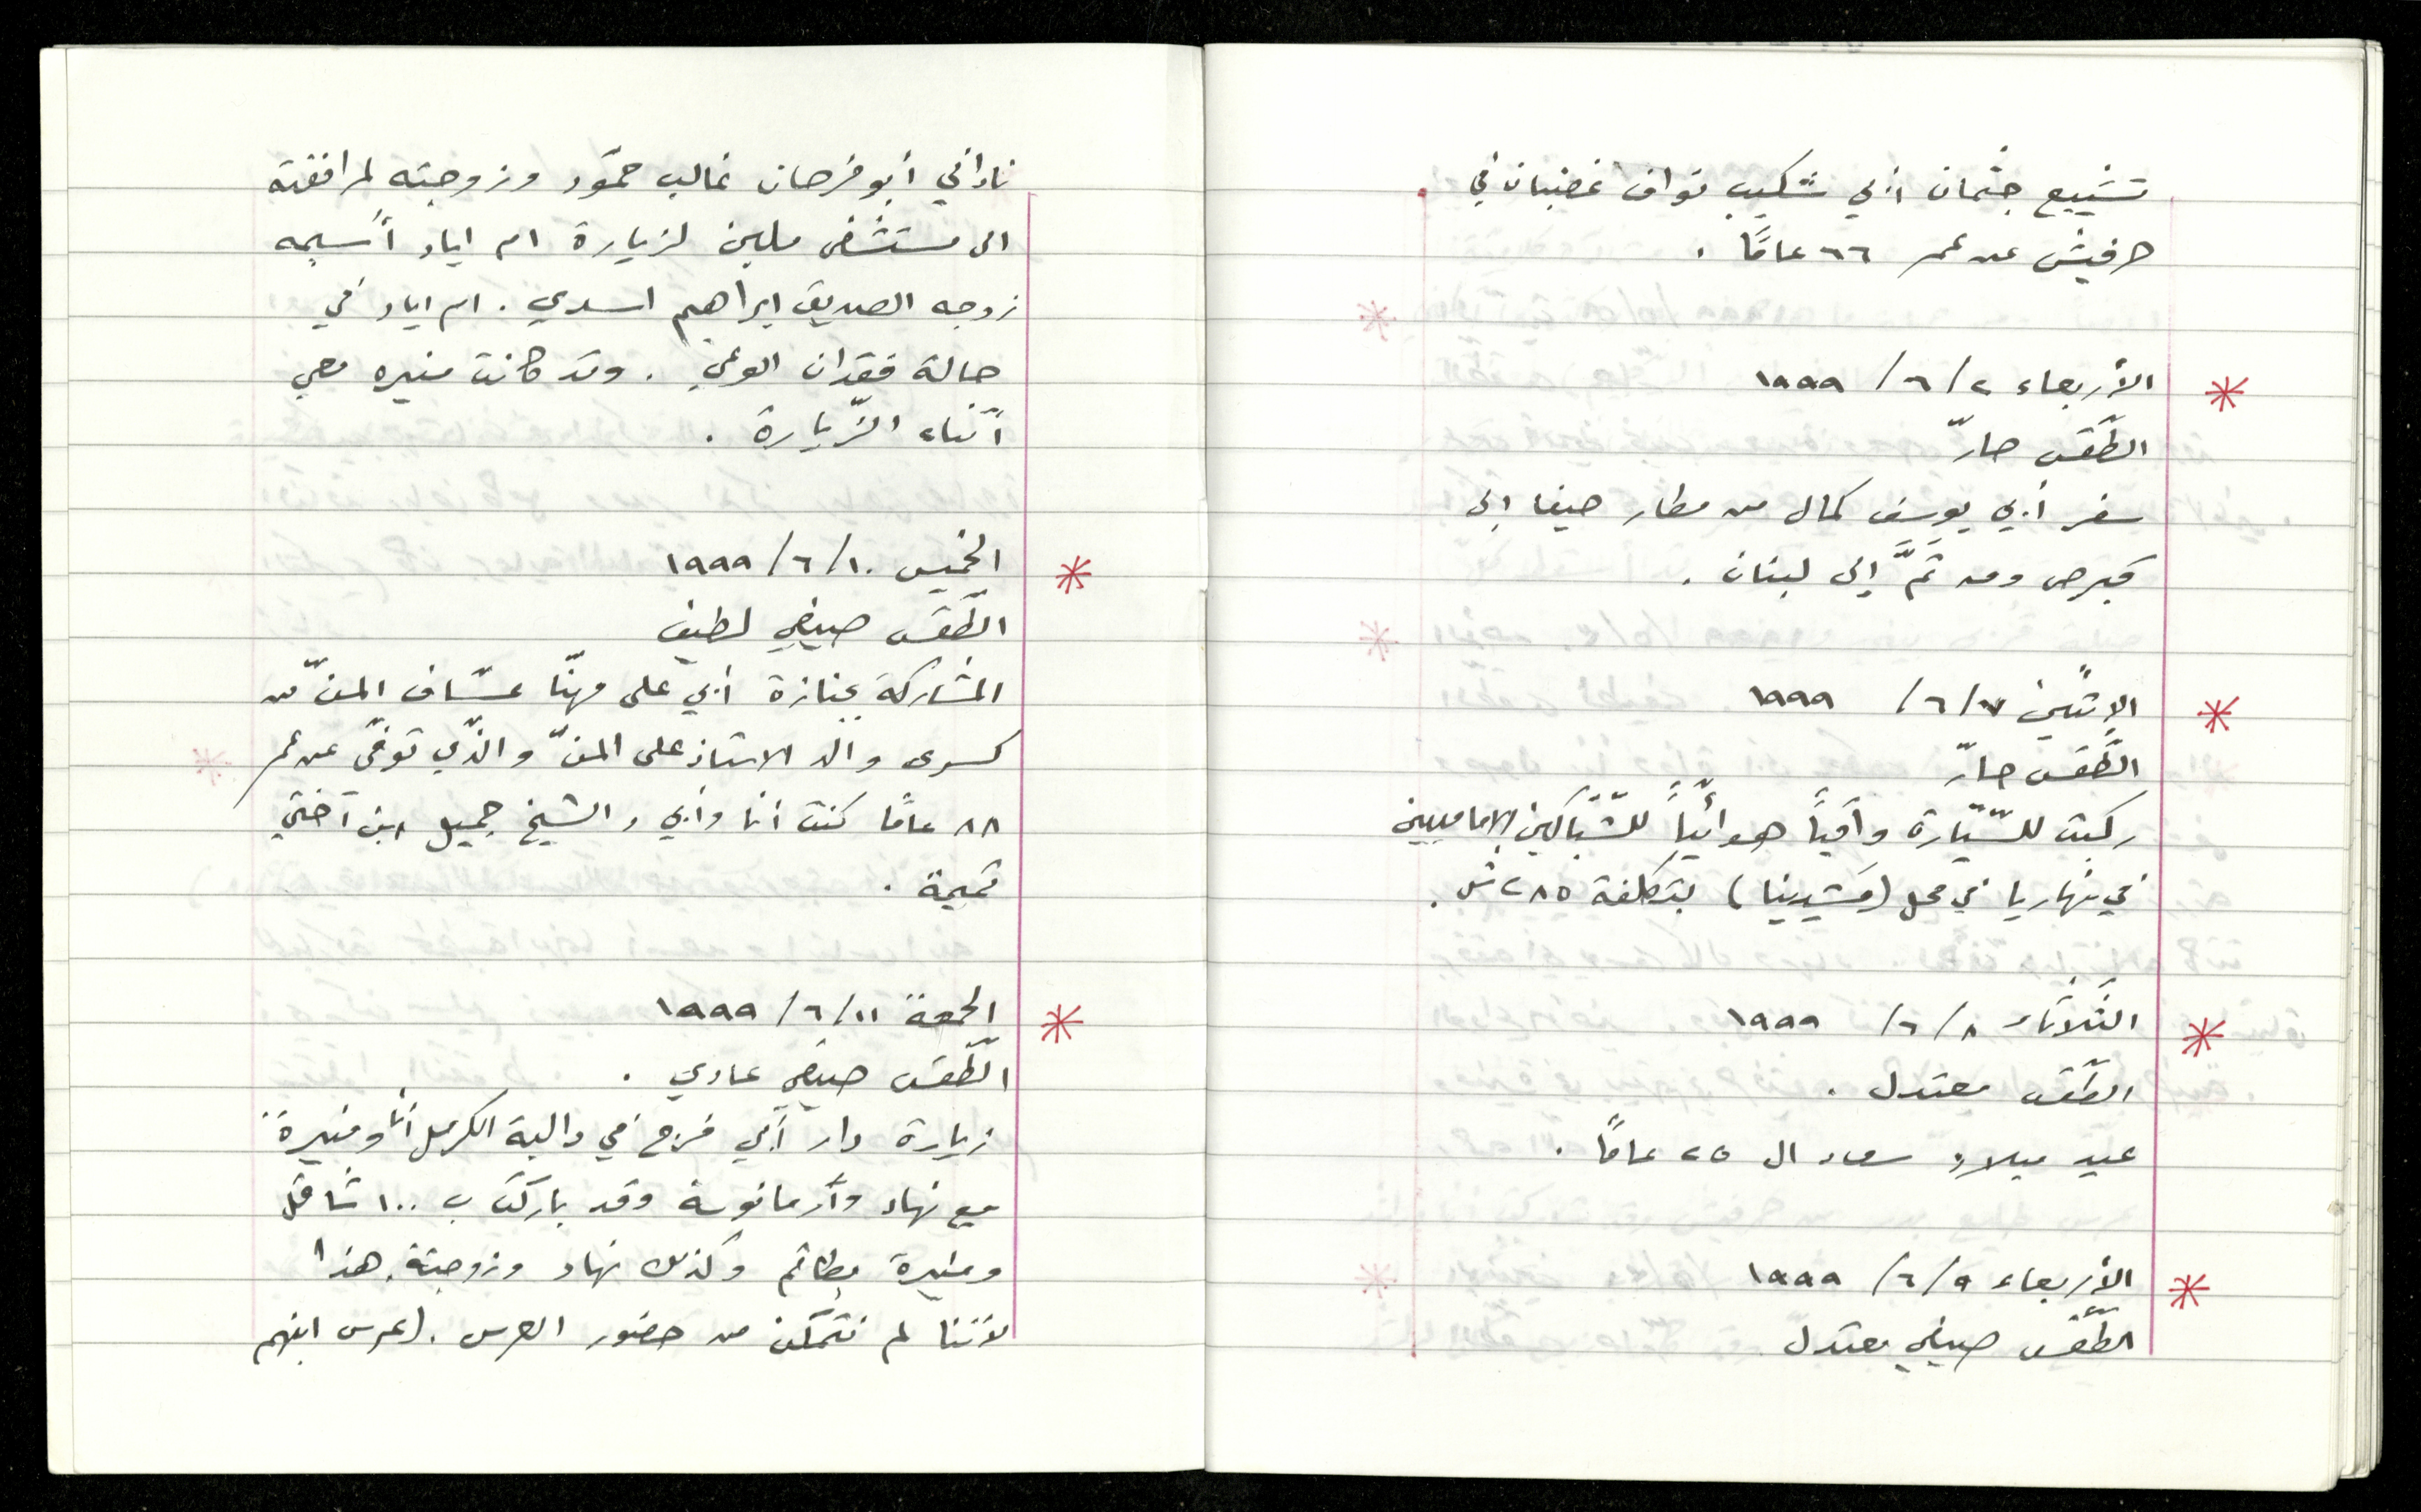 تشييع جثمان أبي شكيب نواف غضبان في
حرفيش عن عمر ٦٦ عامًا .
* الأربعاء ٢/ ٦/ ١٩٩٩
الطّقس حارّ
سفر أبي يوسف كمال من مطار حيفا إلى
قبرص ومن ثَمَّ إلى لبنان .
* الإثنين ٧/ ٦/ ١٩٩٩
الطّقس حارّ
ركبت للسّيّارة واقياً هوائيّاً للشّبّاكين الاماميين
في نهاريا في محل ( ) بتكلفة ٢٨٥ ش .
* الثّلاثاء ٨/ ٦/ ١٩٩٩
الطّقس معتدل .
عيد ميلاد سعاد ال ٢٥ عامًا .
* الأربعاء ٩/ ٦/ ١٩٩٩
الطّقس صيفي معتدل
ناداني أبو فرحان غالب حمّود وزوجته لمرافقته
الى مستشفى ملبين لزيارة ام اياد أسيمه
زوجه الصديق ابراهيم اسدي . ام اياد في
حالة فقدان الوعي . وقد كانت منيره معي
أثناء الزّيارة .
* الخميس ١٠/ ٦/ ١٩٩٩
الطّقس صيفي لطيف
المشاركة بجنازة أبي علي مهنّا عسّاف المنّ من
كسرى والد الاستاذ علي المنّ والذّي توفّي عن عمر
٨٨ عامًا كنت أنا وأبي والشيخ جميل ابن أختي
تميمة .
* الجمعة ١١/ ٦/ ١٩٩٩
الطّقس صيفي عادي .
زيارة دار أبي فرج في دالية الكرمل أنا ومنيرة
مع نهاد وأرمانوسة وقد باركت ب ١٠٠ شاقل
ومنيرة بطاقم وكذلك نهاد وزوجته. هذا
لأننا لم نتمكن من حضور العرس . (عرس ابنهم